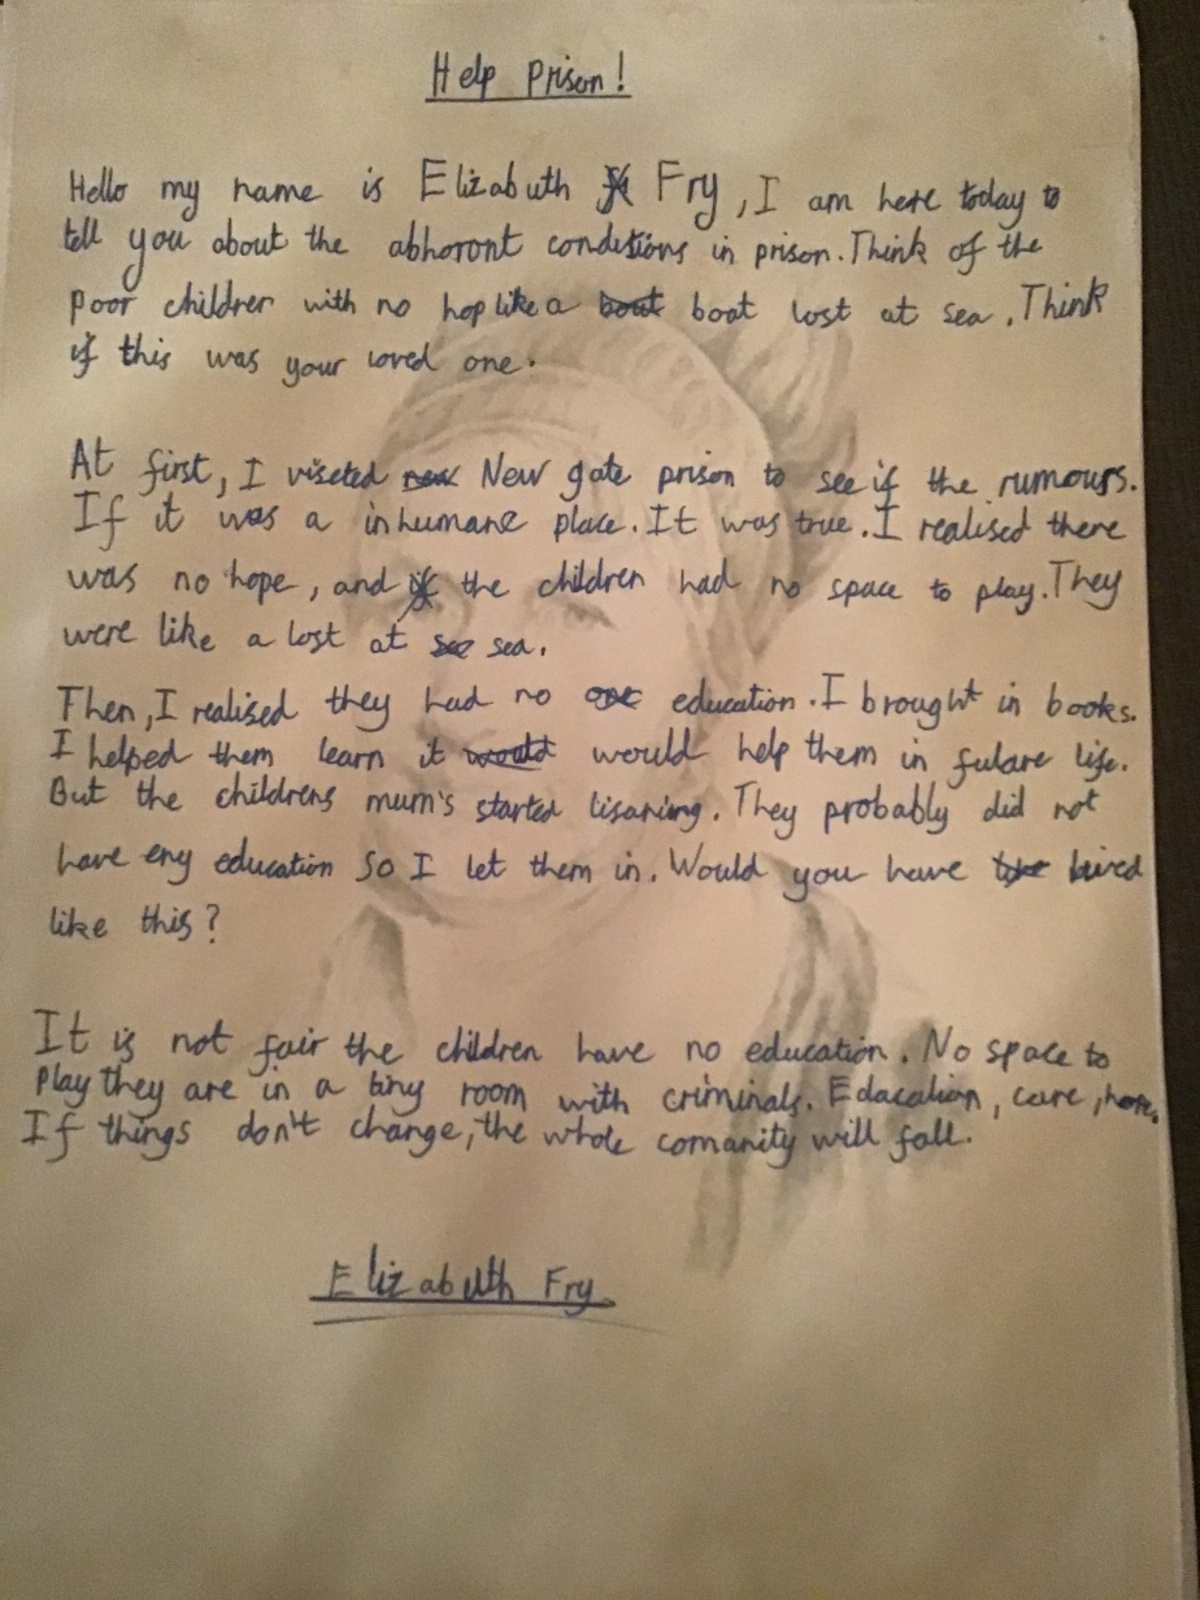 Help Prison!
Hello my name is Elizabuth Fry, I am here today to
tell you about the abhoront conditions in prison. Think of the
poor children with no hop like a boat boat lost at sea. Think
if this was your loved one.
At first, I viseted new New gate prison to see if the rumours.
If it was a inhumane place. It was true. I realised there
was no hope, and if the children had no space to play. They
were like a lost at see sea.
Then, I realised they had no education. I brought in books.
I helped them learn it would would help them in fulare life.
But the childrens mum's started lisaning. They probably did not
have eny education so I let them in. Would you have lived
like this?
It is not fair the children have no education. No space to
play they are in a tiny room with criminals. Edacation, care, hope.
If things don't change, the whole comanity will fall.
Elizabuth Fry